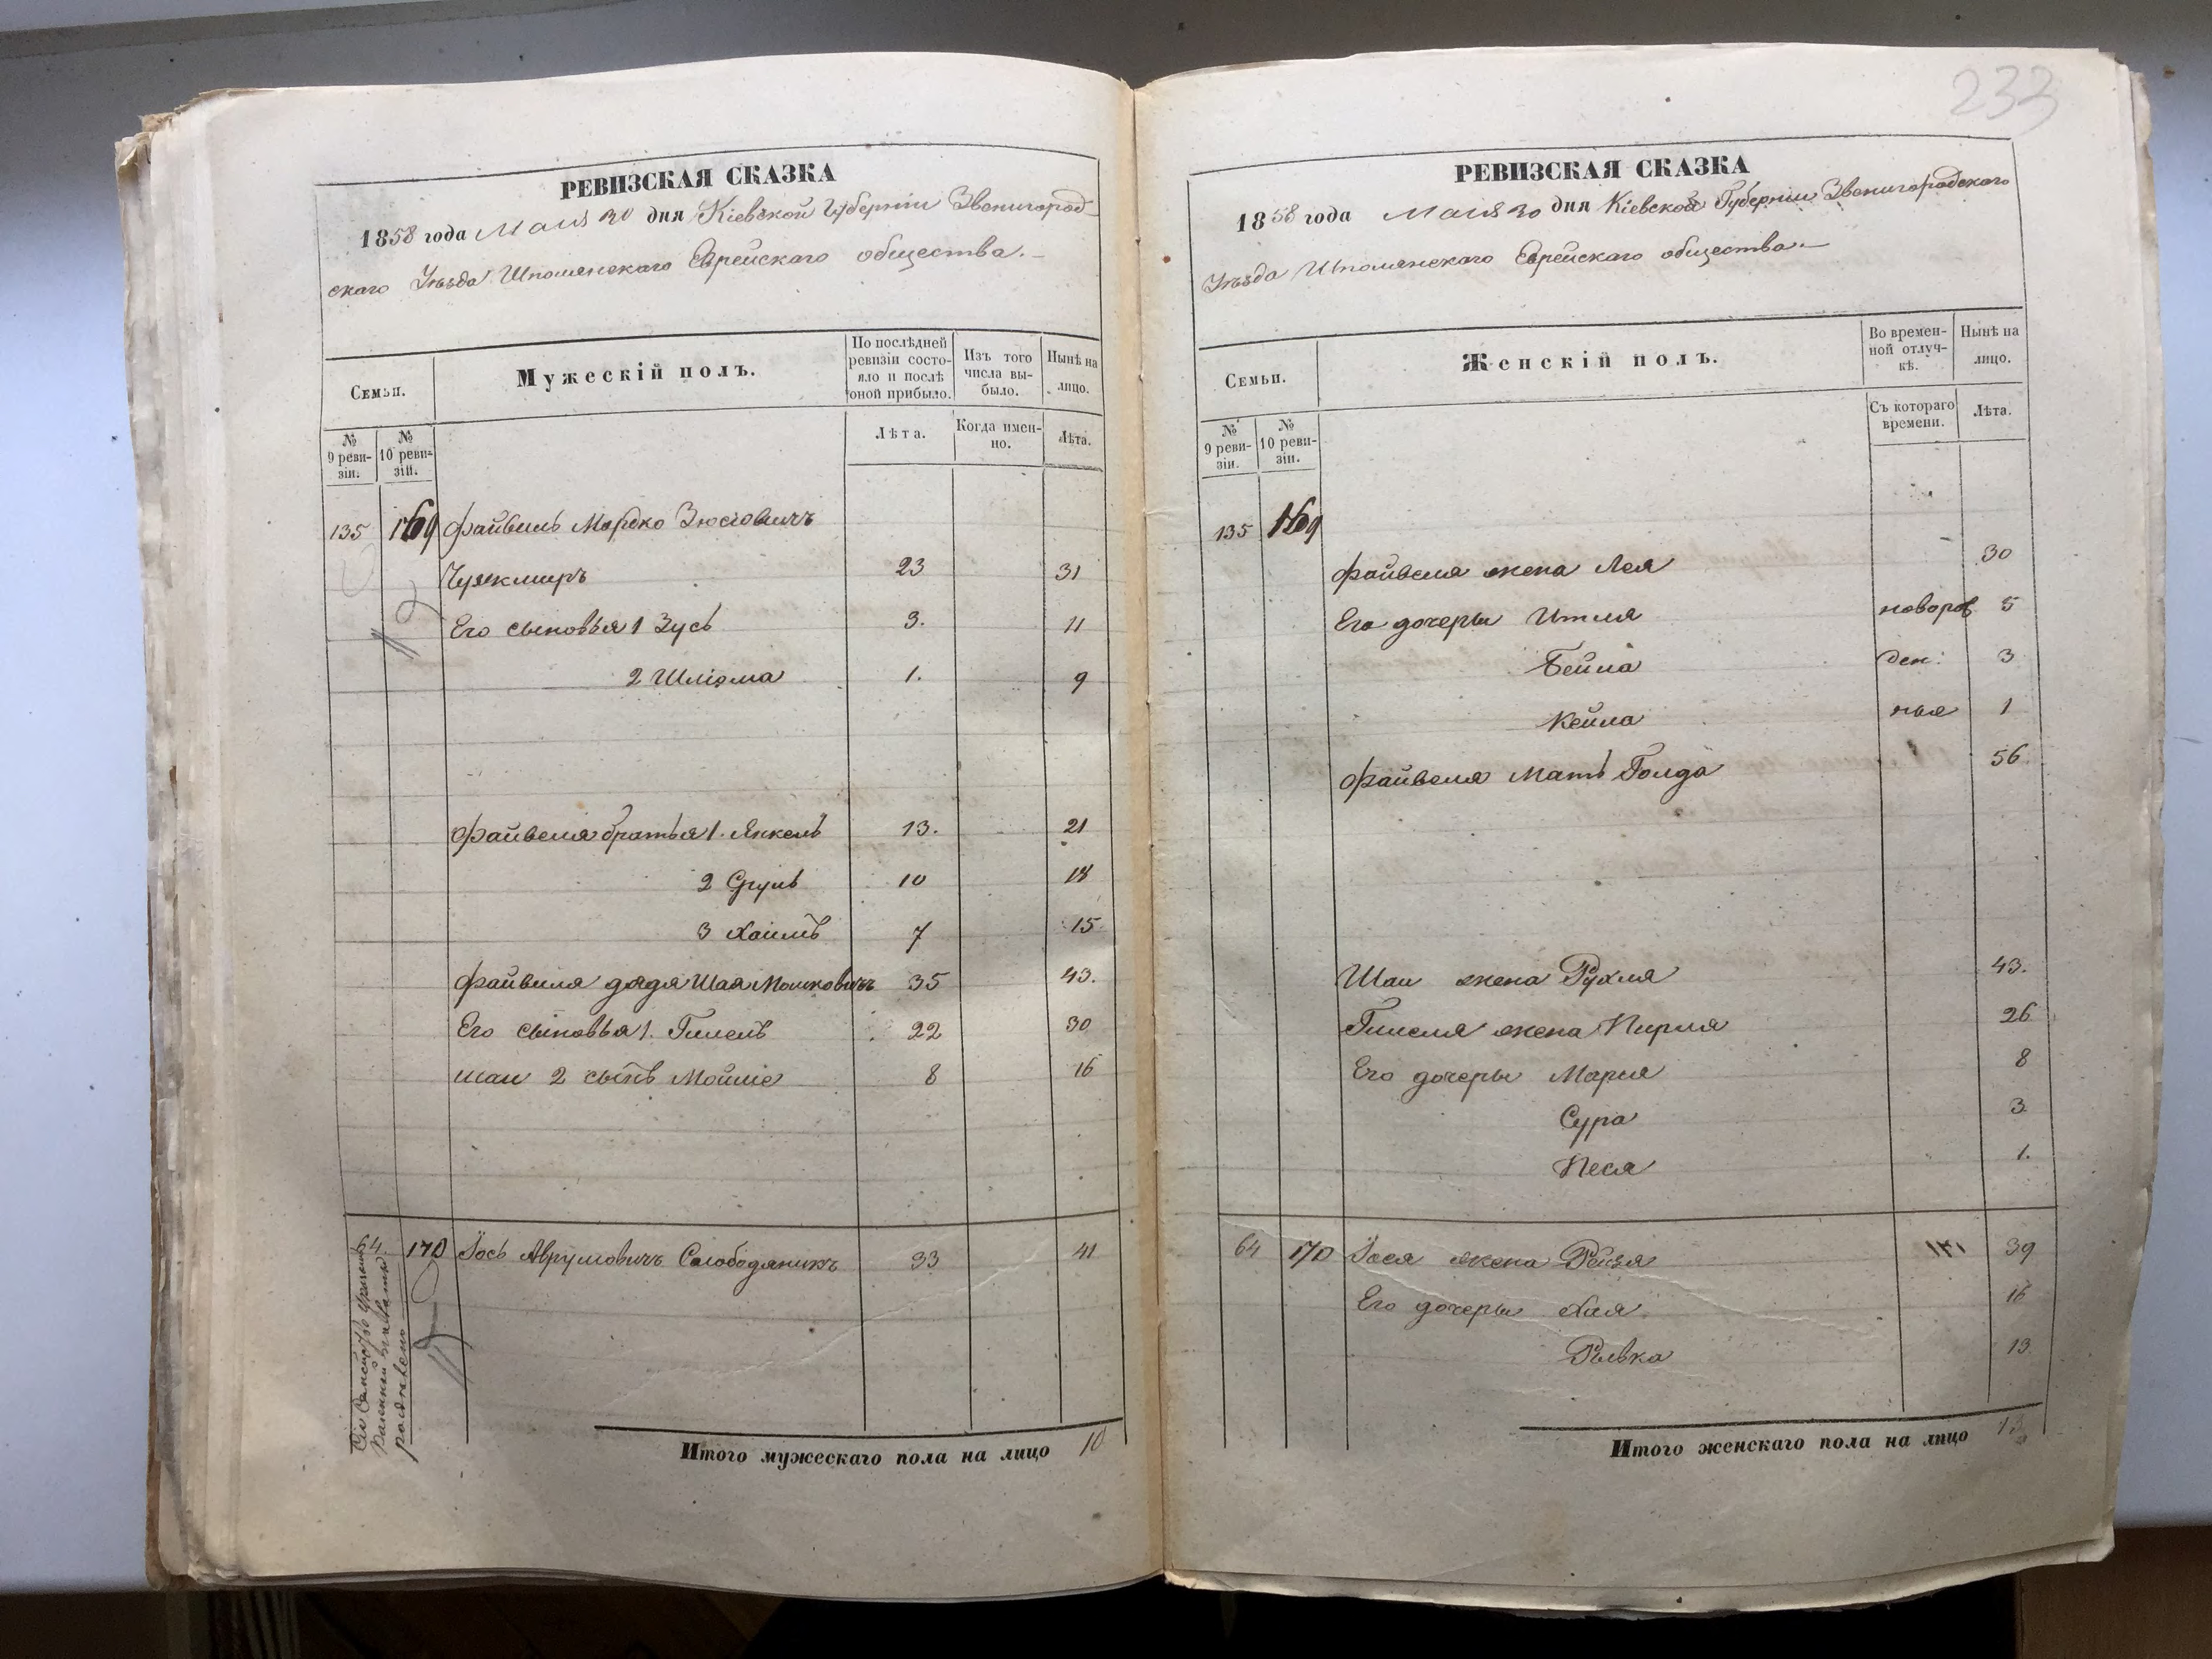 РЕВИЗСКАЯ СКАЗКА
1858 года Мая 20 дня Кіевской Губерніи Звенигород-
скаго Уѣзда Шполянскаго Еврейскаго общества.
Семьи.
Мужескій полъ.
По послѣдней ревизіи состояло и послѣ оной прибыло.
Изъ того числа выбыло.
Нынѣ на лицо.
№ 9 ревизіи.
№ 10 ревизіи.
Лѣта.
Когда именно.
Лѣта.
135 169 Файвель Мордко Зюсіовичъ
23 31
Его сыновья 1 Зусь 3. 11
2 Шліома 1. 9
Файвеля братья 1. Янкель 13. 21
2 Сруль 10 18
3 Хаимъ 7 15
Файвиля дядя Шая Мошковичъ 35 43.
Его сыновья 1. Гишель 22 30
шаи 2 сынъ Мойшіе 8 16
64 170 Іось Аврумовичъ Слободяникъ 33 41
Итого мужескаго пола на лицо 10
233
РЕВИЗСКАЯ СКАЗКА
1858 года Мая 20 дня Кіевской Губерніи Звенигородскаго
Уѣзда Шполянскаго Еврейскаго общества.
Семьи.
Женскій полъ.
Во временной отлучкѣ.
Нынѣ на лицо.
№ 9 ревизіи.
№ 10 ревизіи.
Съ котораго времени.
Лѣта.
135 169
Файвеля жена Лея 30
Его дочеры Итля новорож 5
Бейла ден: 3
Кейла ныя 1
Файвеля мать Голда 56
Шаи жена Рухля 43.
Гишеля жена Перля 26
Его дочеры Маріа 8
Сура 3
Песя 1.
64 170 Іося жена Рейзя 39
Его дочеры Хая 16
Рывка 13
Итого женскаго пола на лицо 13